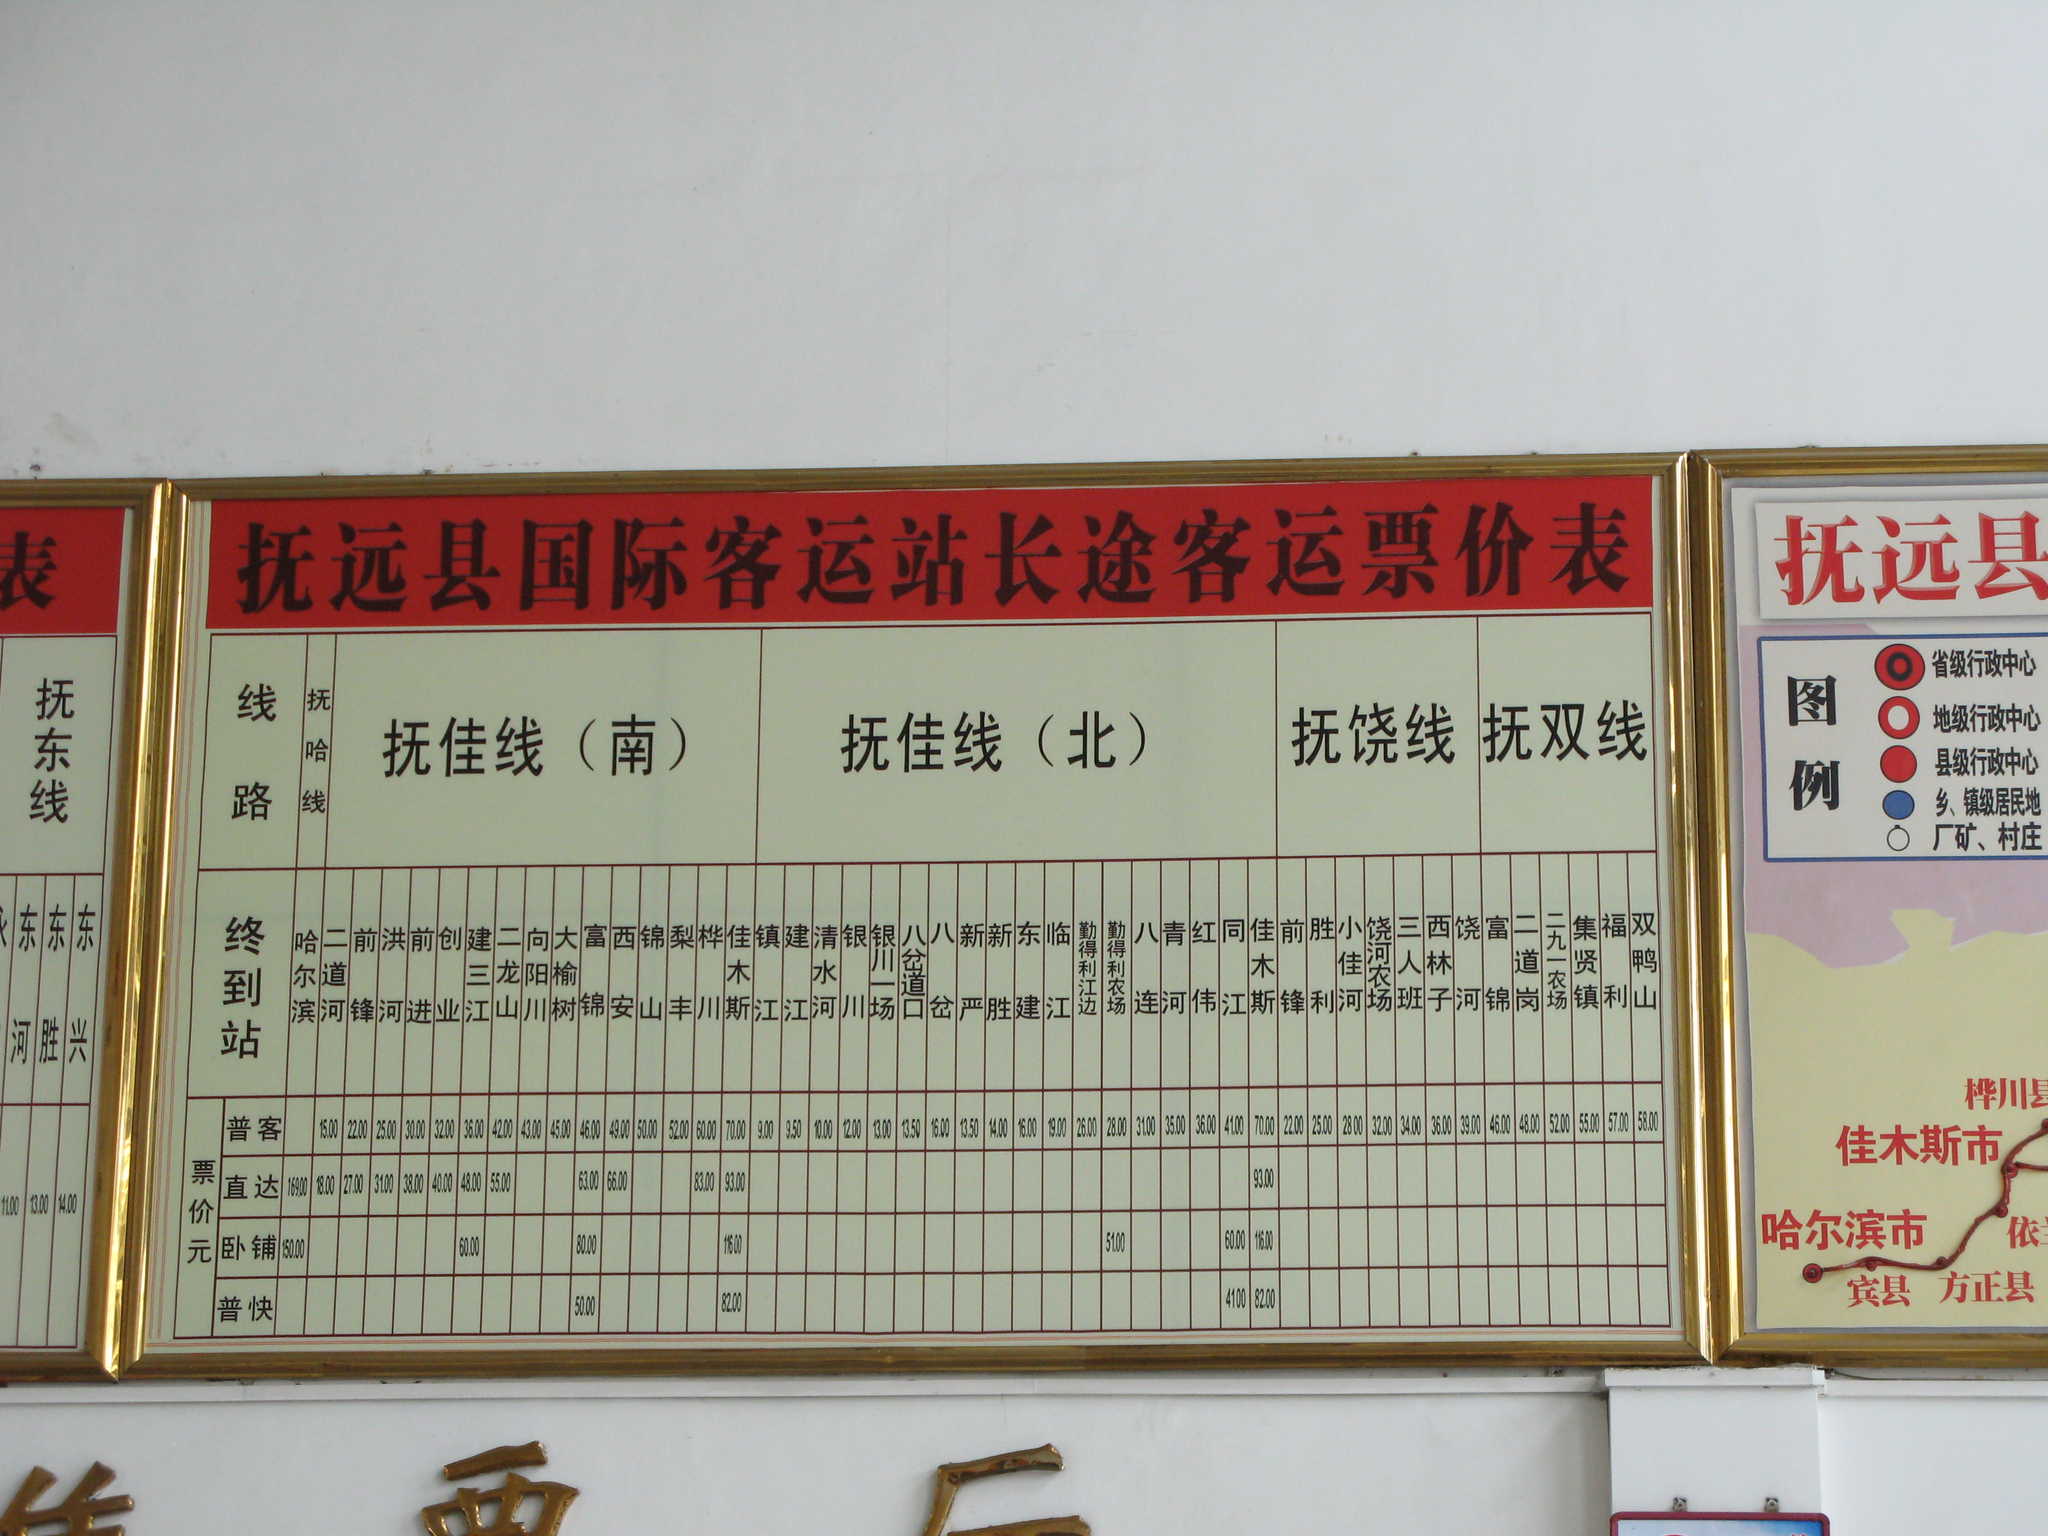 表
抚东线
东河
东胜
东兴
11.00 13.00 14.00
抚远县国际客运站长途客运票价表
线路 抚哈线 抚佳线（南） 抚佳线（北） 抚饶线 抚双线
终到站 哈尔滨 二道河 前锋 洪河 前进 创业 建三江 二龙山 向阳川 大榆树 富锦 西安 锦山 梨丰 桦川 佳木斯 镇江 建江 清水河 银川 银川一场 八岔道口 八岔 新严 新胜 东建 临江 勤得利江边 勤得利农场 八连 青河 红伟 同江 佳木斯 前锋 胜利 小佳河 饶河农场 三人班 西林子 饶河 富锦 二道岗 二九一农场 集贤镇 福利 双鸭山
票价元
普客 15.00 22.00 25.00 30.00 32.00 36.00 42.00 43.00 45.00 46.00 49.00 50.00 52.00 60.00 70.00 9.00 9.50 10.00 12.00 13.00 13.50 16.00 13.50 14.00 16.00 19.00 26.00 28.00 31.00 35.00 36.00 41.00 70.00 22.00 25.00 28.00 32.00 34.00 36.00 39.00 46.00 48.00 52.00 55.00 57.00 58.00
直达 169.00 18.00 27.00 31.00 38.00 40.00 48.00 55.00 63.00 66.00 83.00 93.00 93.00
卧铺 150.00 60.00 80.00 116.00 51.00 60.00 116.00
普快 50.00 82.00 41.00 82.00
抚远县
图例
省级行政中心
地级行政中心
县级行政中心
乡、镇级居民地
厂矿、村庄
桦川县
佳木斯市
哈尔滨市
依兰
宾县 方正县